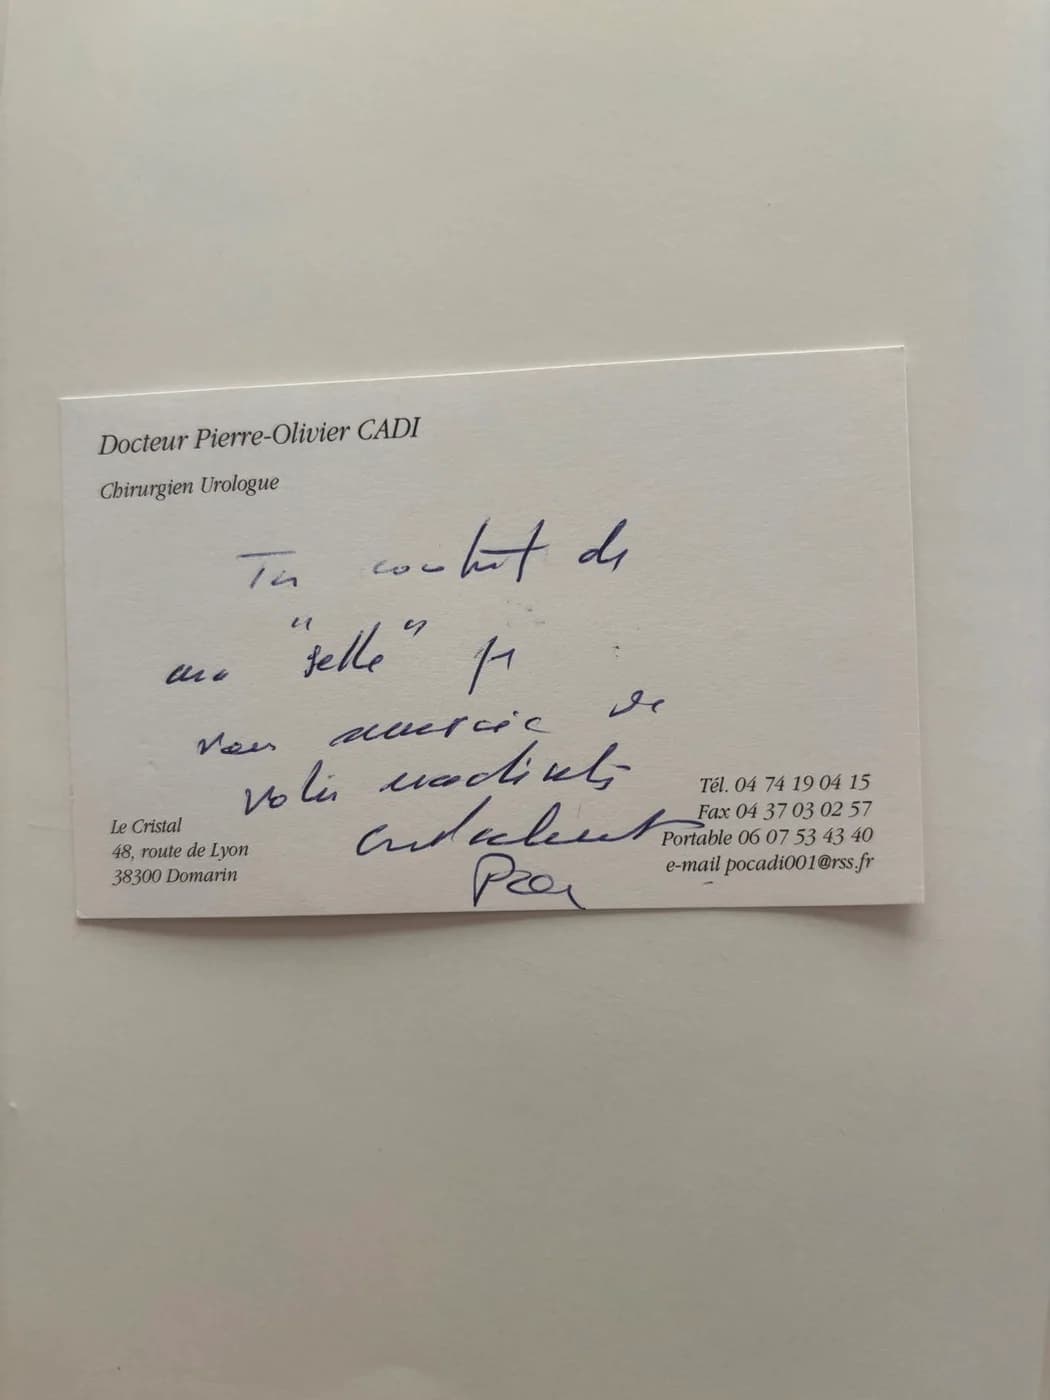 Docteur Pierre-Olivier CADI
Chirurgien Urologue
Très content de
ma "selle" je
vous remercie de
votre
cordialement
Tél. 04 74 19 04 15
Fax 04 37 03 02 57
Portable 06 07 53 43 40
e-mail pocadi001@rss.fr
Le Cristal
48, route de Lyon
38300 Domarin